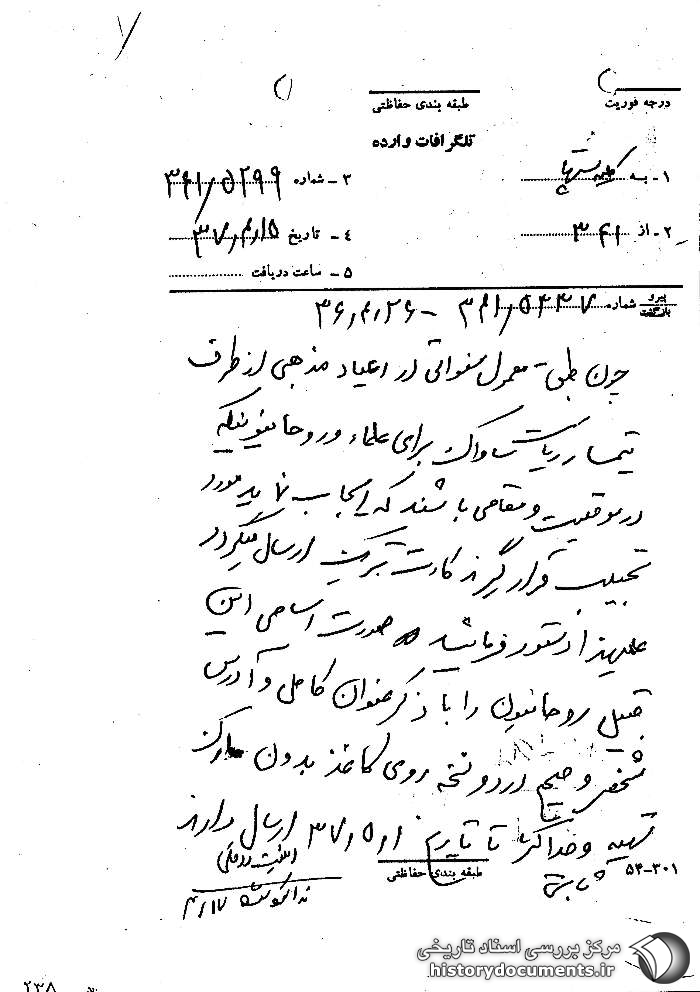 درجه فوریت
طبقه بندی حفاظتی
تلگرافات وارده
۱- به کلیه
۳- شماره ۳۴۱/۵۲۹۹
۲- از ۳۴۱
۴- تاریخ ۳۷/۴/۱۵
۵- ساعت دریافت
پیرو
بازگشت شماره ۳۴۱/۵۴۴۷ - ۳۶/۴/۲۶
چون طبق معمول سنواتی در اعیاد مذهبی از طرف
تیمسار ریاست ساواک برای علماء و روحانیونیکه
در موقعیت و مقامی باشند که ایجاب نماید مورد
تحبیب قرار گیرند کارت تبریک ارسال میگردد
علیهذا دستور فرمائید صورت اسامی این
قبیل روحانیون را با ذکر عنوان کامل و آدرس
مشخص و صحیح در دو نسخه روی کاغذ بدون مارک
تهیه و حداکثر تا تاریخ ۳۷/۵/۱ ارسال دارند
ثابتی
طبقه بندی حفاظتی
۵۴-۳۰۱
۴/۱۷
مرکز بررسی اسناد تاریخی
historydocuments.ir
۲۳۸